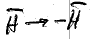 H̅ → -H̅